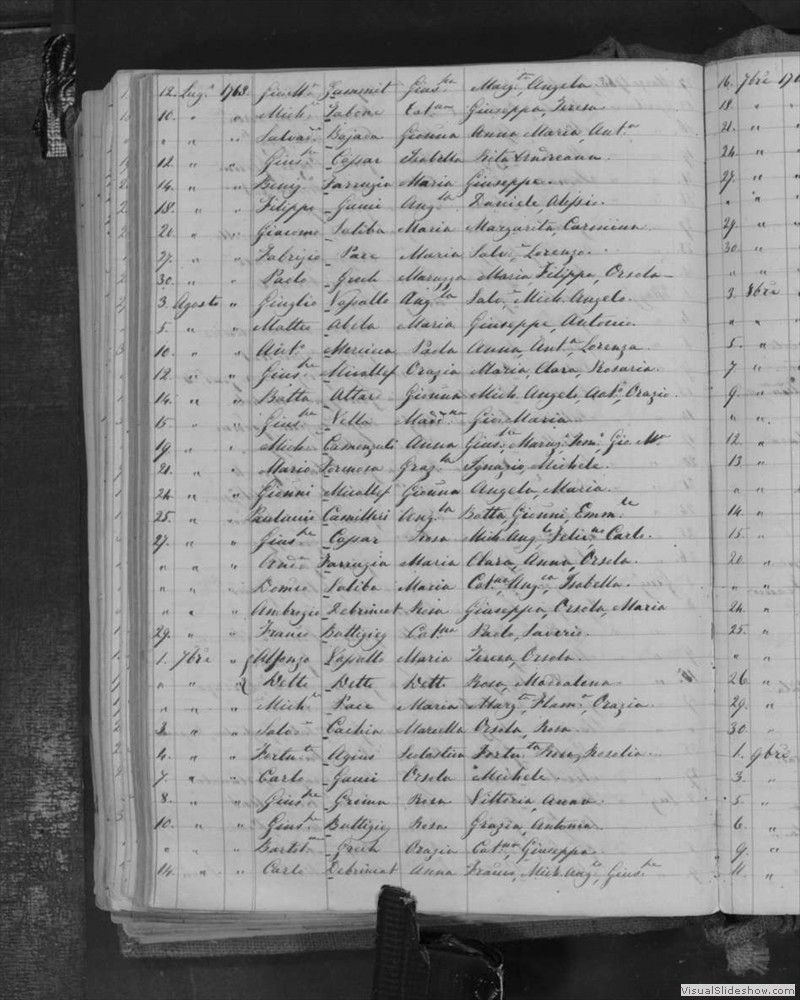 12. Lug.º 1768. Gio: Mª Zammit Gius.pa Marg.ta Angela
10. " " Mich. Cat.na Giuseppa, Teresa
" " " Salvat. Bajada Gionna Anna Maria, Ant.a
12. " " Gius.pe Caspar Isabella Rita Andreana
14. " " Benig. Farrugia Maria Giuseppe
18. " " Filippo Gauci Ang.ta Daniele, Alessio
20. " " Giacomo Saliba Maria Margarita, Carmina
27. " " Fabrizio Pace Maria Salv. Lorenzo
30. " " Paolo Grech Maruzza Maria, Filippa, Orsola
3. Agosto " Giuglio Vapollo Ang.ta Salv. Mich. Angelo
5. " " Matteo Abela Maria Giuseppe, Antonio
10. " " Ant.o Mercieca Paola Anna, Ant.a, Lorenza
12. " " Gius.pe Micallef Orazia Maria, Clara, Rosaria
14. " " Batta Attar Gionna Mich. Angelo, Ant.o, Orazio
15. " " Gius.pe Vella Gio: Maria
19. " " Mich. Camenzuli Anna Gio: Mª
21. " " Mario Formosa Graz.ta Ignazio, Michele
24. " " Gionni Micallef Gionna Angela, Maria
25. " " Camilleri Ang.ta Batta, Gionni, Emm.le
27. " " Gius.pe Caspar Rosa Mich. Ang.lo Felic.no Carlo
" " " Andª Farrugia Maria Clara, Anna, Orsola
" " " Domeo Saliba Maria Cat.na, Ang.ca, Isabella
" " " Ambrogio Debrincat Rosa Giuseppa, Orsola, Maria
29. " " Franco Buttigieg Cat.na Paolo, Saverio
1. 7bre " Alfonzo Vapollo Maria Teresa, Orsola
" " " Detto Detto Detto Rosa, Maddalena
" " " Mich. Pace Maria Marg.ta, Orazia
2. " " Salv. Cachia Marcella Orsola, Rosa
4. " " Fortu.to Agius Sebastiana Fortu.ta Rosa, Rosolia
7. " " Carlo Gauci Orsola Michele
8. " " Gius.pe Grima Rosa Vittoria, Anna
10. " " Gius.pe Buttigieg Rosa Grazia, Antonia
" " " Bartol. Grech Orazia Cat.na, Giuseppa
14. " " Carlo Debrincat Anna Franco, Mich. Ang.lo, Gius.pe
16. 7bre 176
18. "
21. "
24. "
27. "
" "
29. "
30. "
" "
3. 8bre
" "
5. "
7. "
9. "
" "
12. "
13. "
" "
14. "
15. "
20. "
" "
24. "
25. "
" "
26 "
29. "
30. "
1. 9bre
3. "
5. "
6. "
9. "
11. "
VisualSlideshow.com